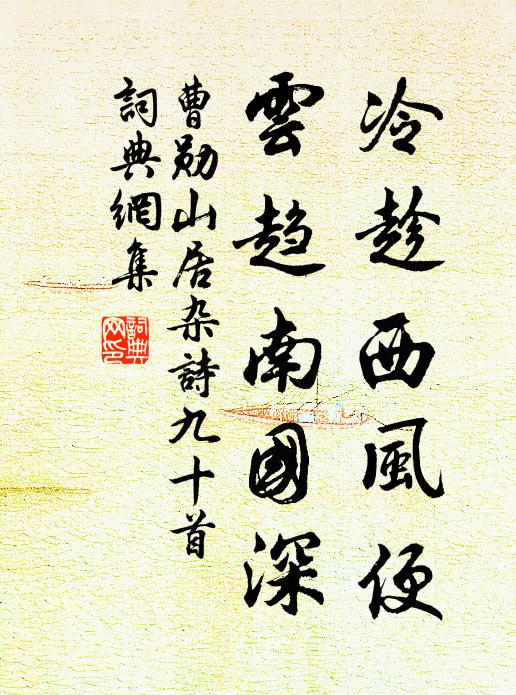 冷趁西風便
雲趨南國深
曹勛山居杂詩九十首
詞典網集
詞典
网印